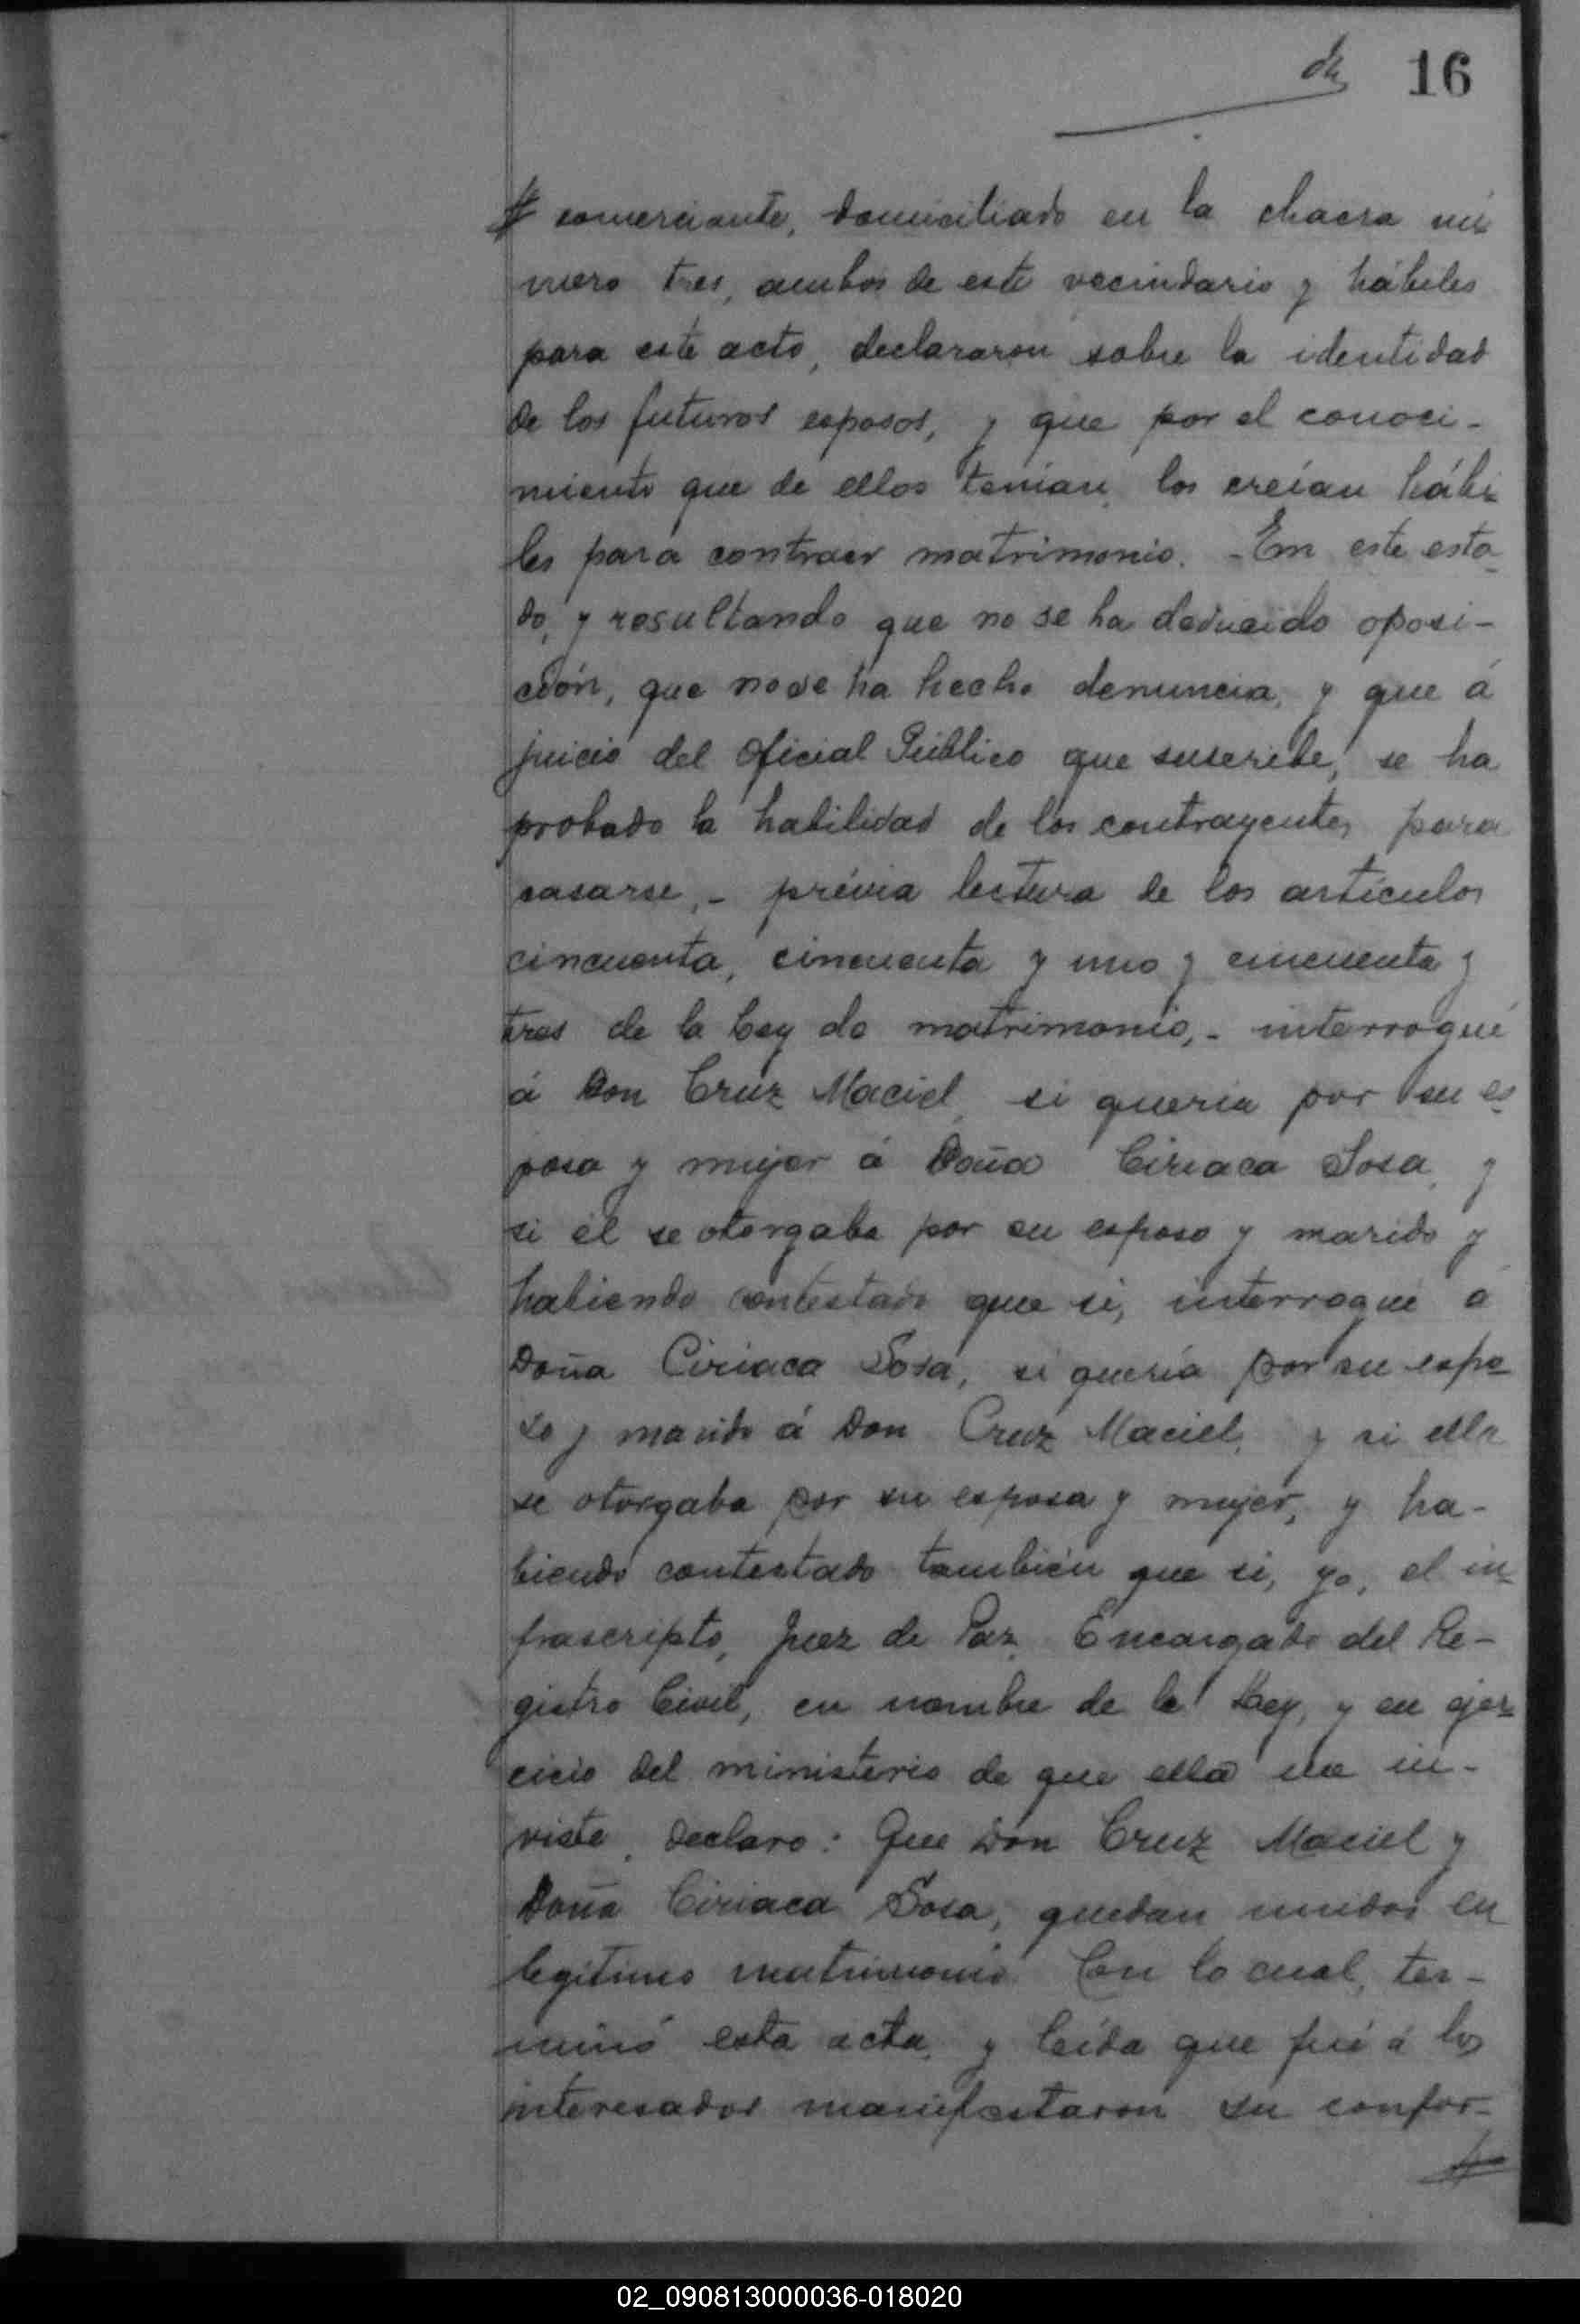 16
# comerciante, domiciliado en la chacra nú-
mero tres, ambos de este vecindario y hábiles
para este acto, declararon sobre la identidad
de los futuros esposos, y que por el conoci-
miento que de ellos tenían, los creían hábi-
les para contraer matrimonio. - En este esta-
do, y resultando que no se ha deducido oposi-
ción, que no se ha hecho denuncia, y que á
juicio del oficial Público que suscribe, se ha
probado la habilidad de los contrayentes para
casarse, - prévia lectura de los artículos
cincuenta, cincuenta y uno y cincuenta y
tres de la Ley de matrimonio, - interrogué
á Don Cruz Maciel, si quería por su es-
posa y mujer á Doña Ciriaca Sosa, y
si él se otorgaba por su esposo y marido y
habiendo contestado que si, interrogué á
Doña Ciriaca Sosa, si quería por su espo-
so y marido á Don Cruz Maciel, y si ella
se otorgaba por su esposa y mujer, y ha-
biendo contestado también que si, yo, el in-
frascripto, Juez de Paz, Encargado del Re-
gistro Civil, en nombre de la Ley, y en ejer-
cicio del ministerio de que ella me in-
viste, declaro: Que Don Cruz Maciel y
Doña Ciriaca Sosa, quedan unidos en
legítimo matrimonio. Con lo cual, ter-
minó esta acta, y leída que fué á los
interesados manifestaron su confor-
#
02_090813000036-018020